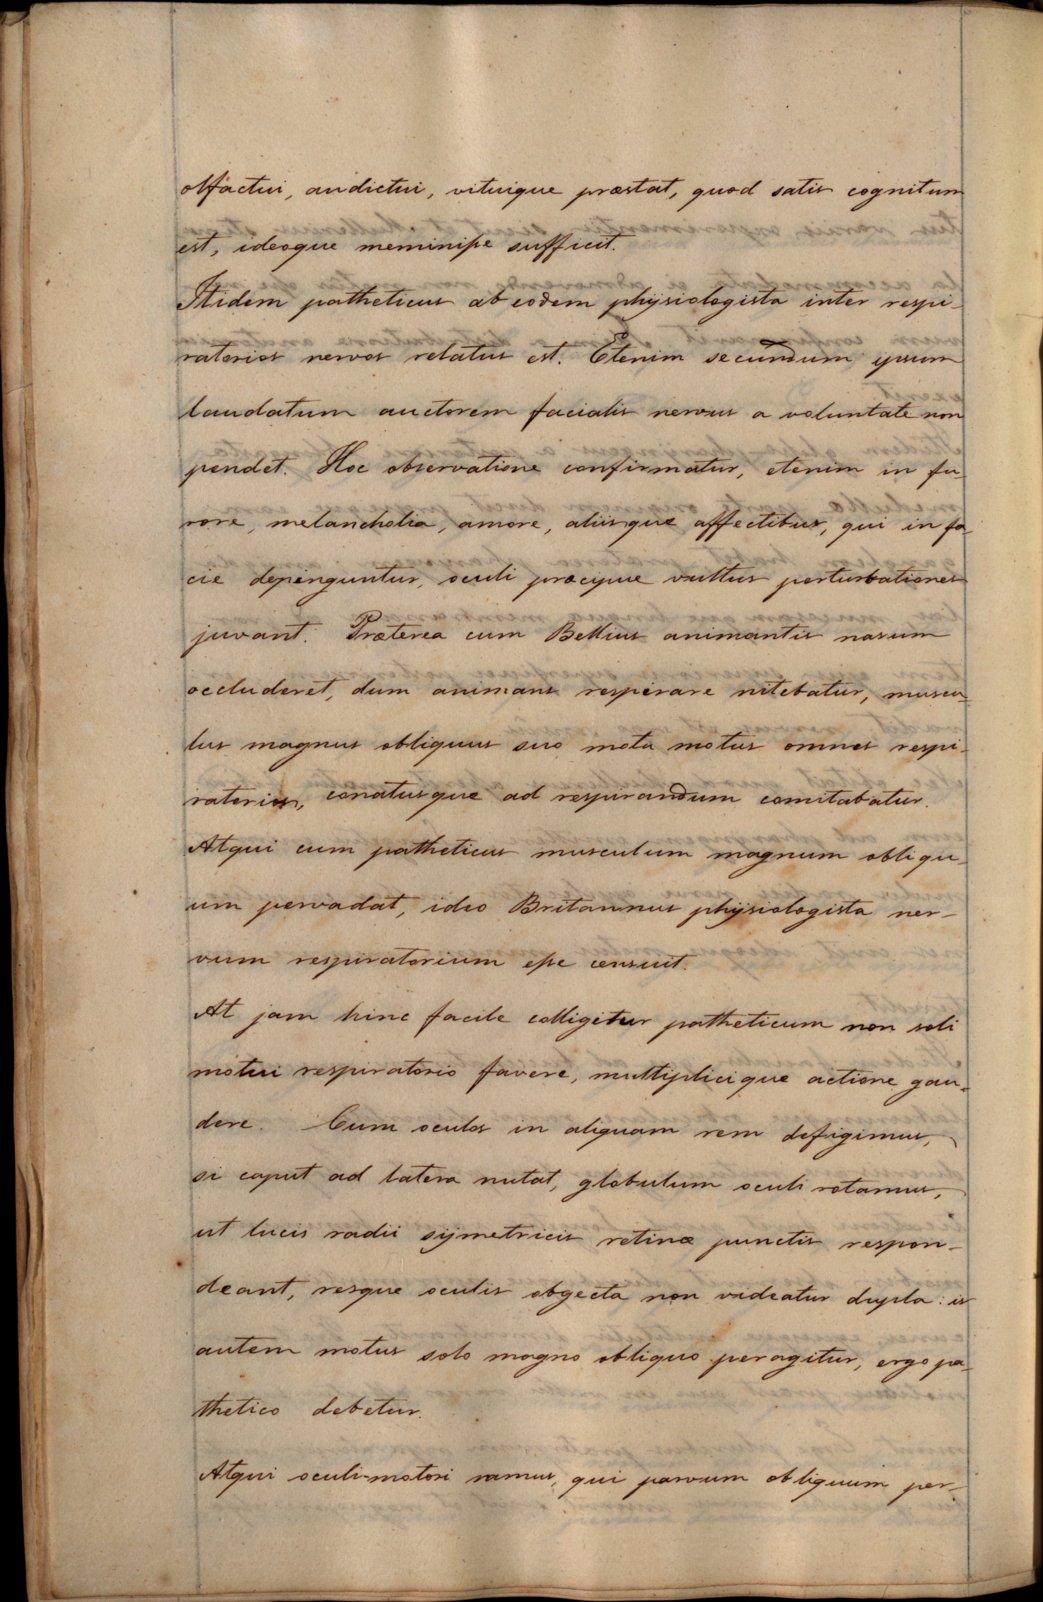 olfactui, audictui, vituique præstat, quod satis cognitum
est, ideoque meminisse sufficit.
Itidem patheticus ab eodem physiologista inter respi-
ratorios nervos relatus est. Etenim secundum ipsum
laudatum auctorem facialis nervus a voluntate non
pendet. Hoc observatione confirmatur, etenim in fu-
rore, melancholia, amore, aliisque affectibus, qui in fa-
cie depinguntur, oculi præcipue vultus perturbationes
juvant. Præterea cum Bellius animantis nasum
occluderet, dum animans respirare nitebatur, muscu-
lus magnus obliquus suo motu motus omnes respi-
ratorios, conatusque ad respirandum comitabatur.
Atqui cum patheticus musculum magnum obliqu-
um pervadat, ideo Britannus physiologista ner-
vum respiratorium esse censuit.
At jam hinc facile colligetur patheticum non soli
motui respiratorio favere, multiplicique actione gau-
dere. Cum oculos in aliquam rem defigimus,
si caput ad latera nutat, globulum oculi rotamus,
ut lucis radii symetricis retinæ punctis respon-
deant, resque oculis obgecta non videatur dupla: is
autem motus solo magno obliquo peragitur, ergo pa-
thetico debetur.
Atqui oculi-motori ramus, qui parvum obliquum per-